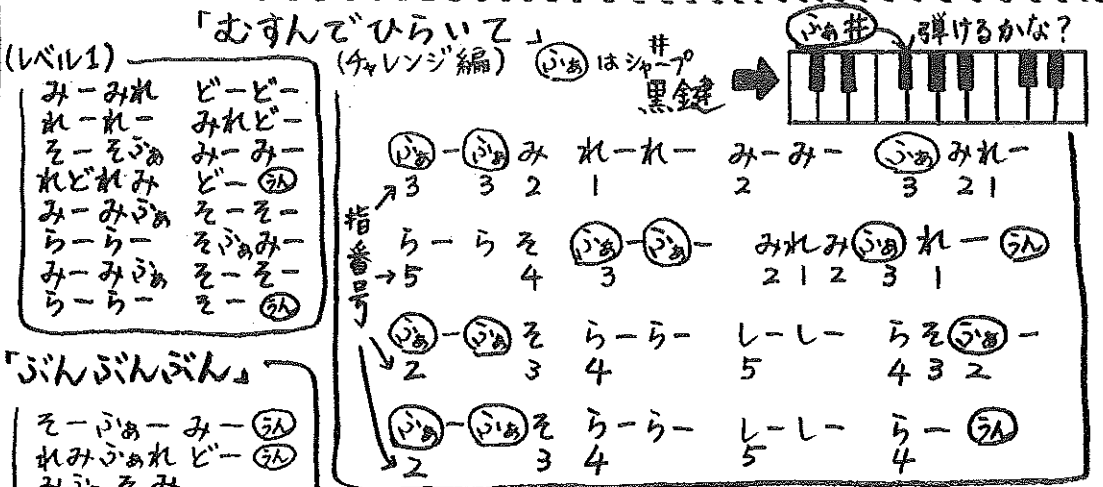 「むすんでひらいて」
(レベル1)
みーみれ どーどー
れーれー みれどー
そーそふぁ みーみー
れどれみ どーうん
みーみふぁ そーそー
らーらー そふぁみー
みーみふぁ そーそー
らーらー そーうん
(チャレンジ編) ふぁはシャープ#黒鍵
ふぁ# 弾けるかな?
ふぁーふぁみ れーれー みーみー ふぁみれー
3 3 2 1 2 3 2 1
指番号
らーらそ ふぁーふぁー みれみふぁ れーうん
5 4 3 2 1 2 3 1
ふぁーふぁそ らーらー しーしー らそふぁー
2 3 4 5 4 3 2
ふぁーふぁそ らーらー しーしー らーうん
2 3 4 5 4
「ぶんぶんぶん」
そーふぁー みーうん
れみふぁれ どーうん